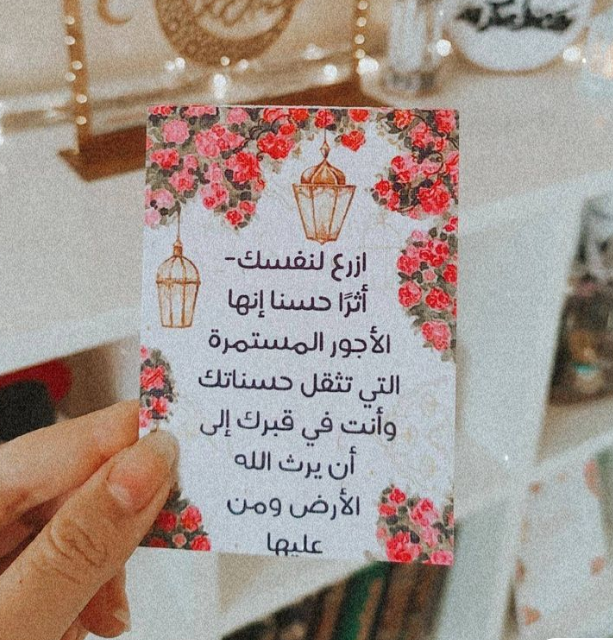 ازرع لنفسك-
أثرًا حسنا إنها
الأجور المستمرة
التي تثقل حسناتك
وأنت في قبرك إلى
أن يرث الله
الأرض ومن
عليها